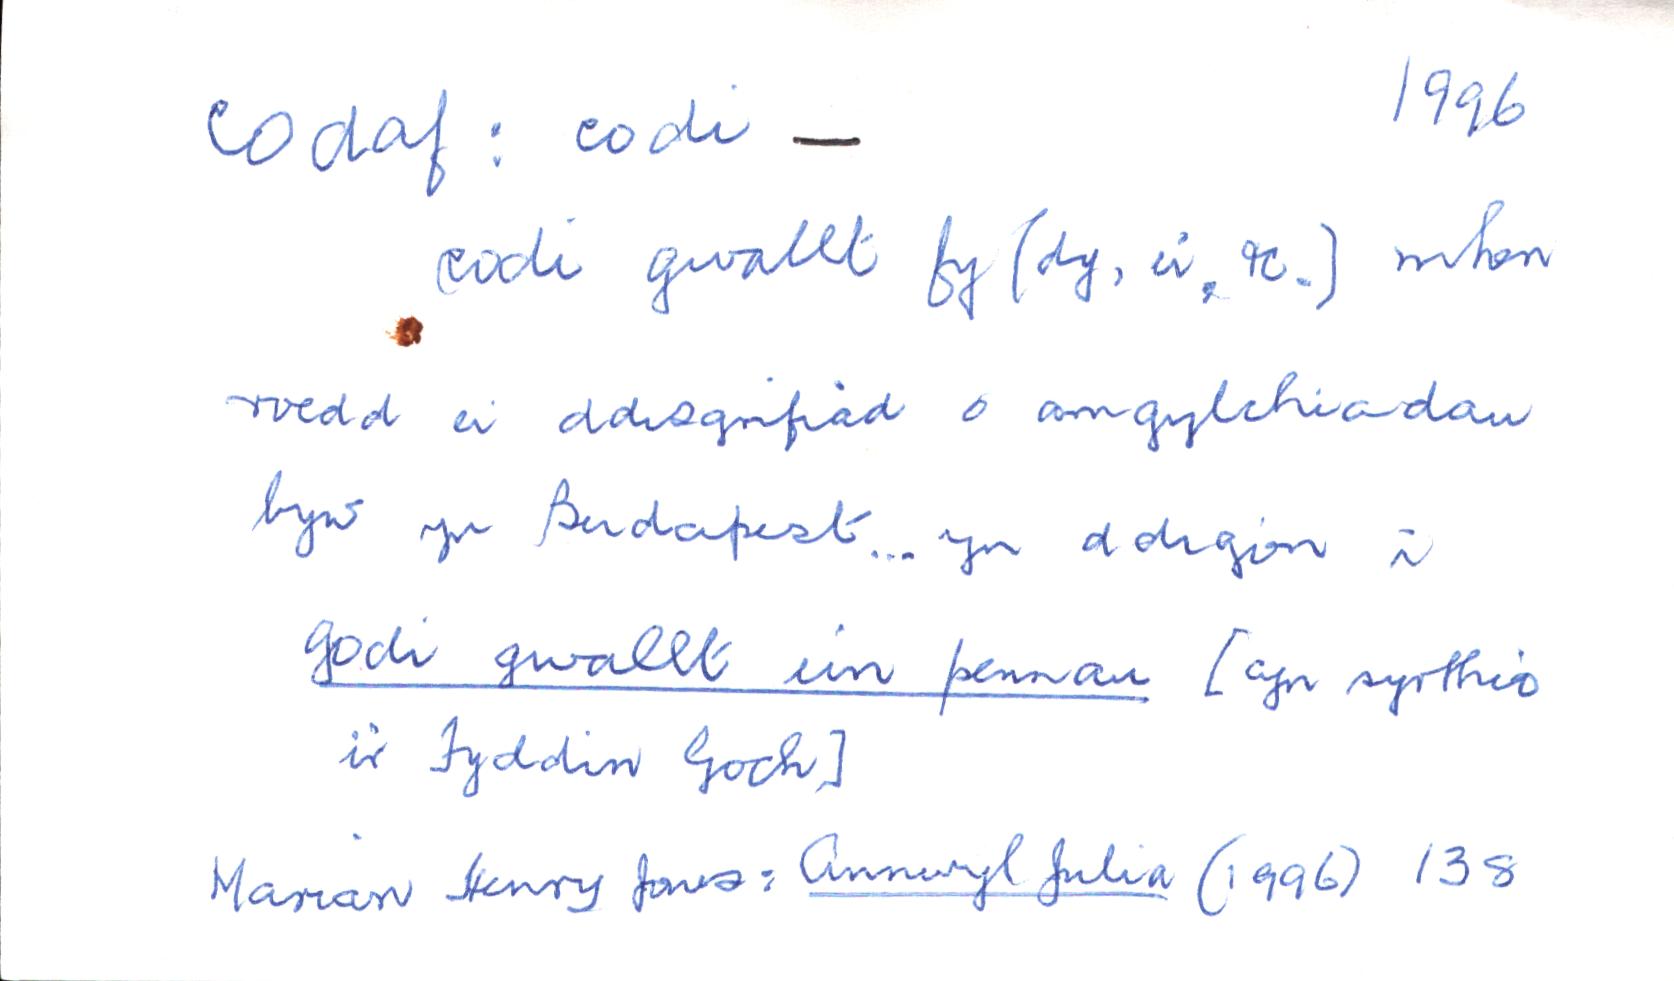 codaf: codi — 1996
codi gwallt fy [dy, ei, &c.] mhen
roedd ei ddisgrifiad o amgylchiadau
byw yn Budapest... yn ddigon i
godi gwallt ein pennau [cyn syrthio
i'r Fyddin Goch]
Marian Henry Jones: Annwyl Julia (1996) 138